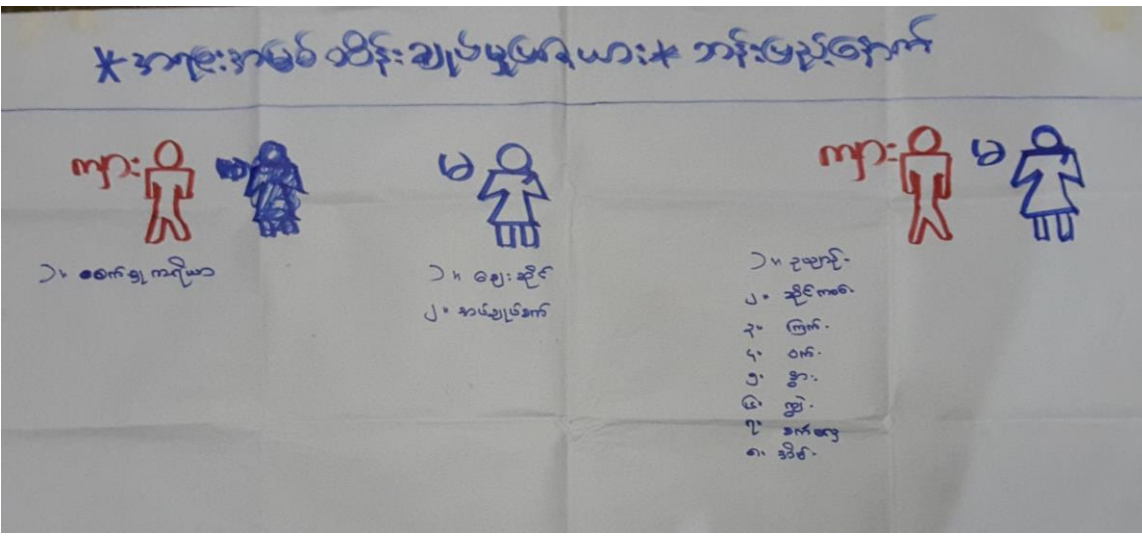 *အရင်းအမြစ် ထိန်းချုပ်မှုပြဇယား* ဘန်းမြည့်နောက်
ကျား
မ
ကျား မ
၁။ စက်မှုကရိယာ
၁။ ဈေးဆိုင်
၂။ အပ်ချုပ်စက်
၁။ ဥယျာဉ်.
၂။ ဆိုင်ကယ်.
၃။ ကြက်.
၄။ ဝက်.
၅။ နွား.
၆။ ကျွဲ.
၇။
၈။ အိမ်.